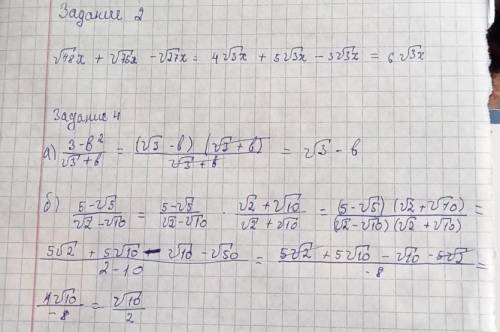 Задание 2
√48x + √75x - √27x = 4√3x + 5√3x - 3√3x = 6√3x
Задание 4
а) (3-b²)/(√3+b) = ((√3-b)(√3+b))/(√3+b) = √3 - b
б) (5-√5)/(√2-√10) = (5-√5)/(√2-√10) · (√2+√10)/(√2+√10) = ((5-√5)(√2+√10))/((√2-√10)(√2+√10)) =
(5√2 + 5√10 - √10 - √50)/(2-10) = (5√2 + 5√10 - √10 - 5√2)/(-8) =
(4√10)/(-8) = √10/2